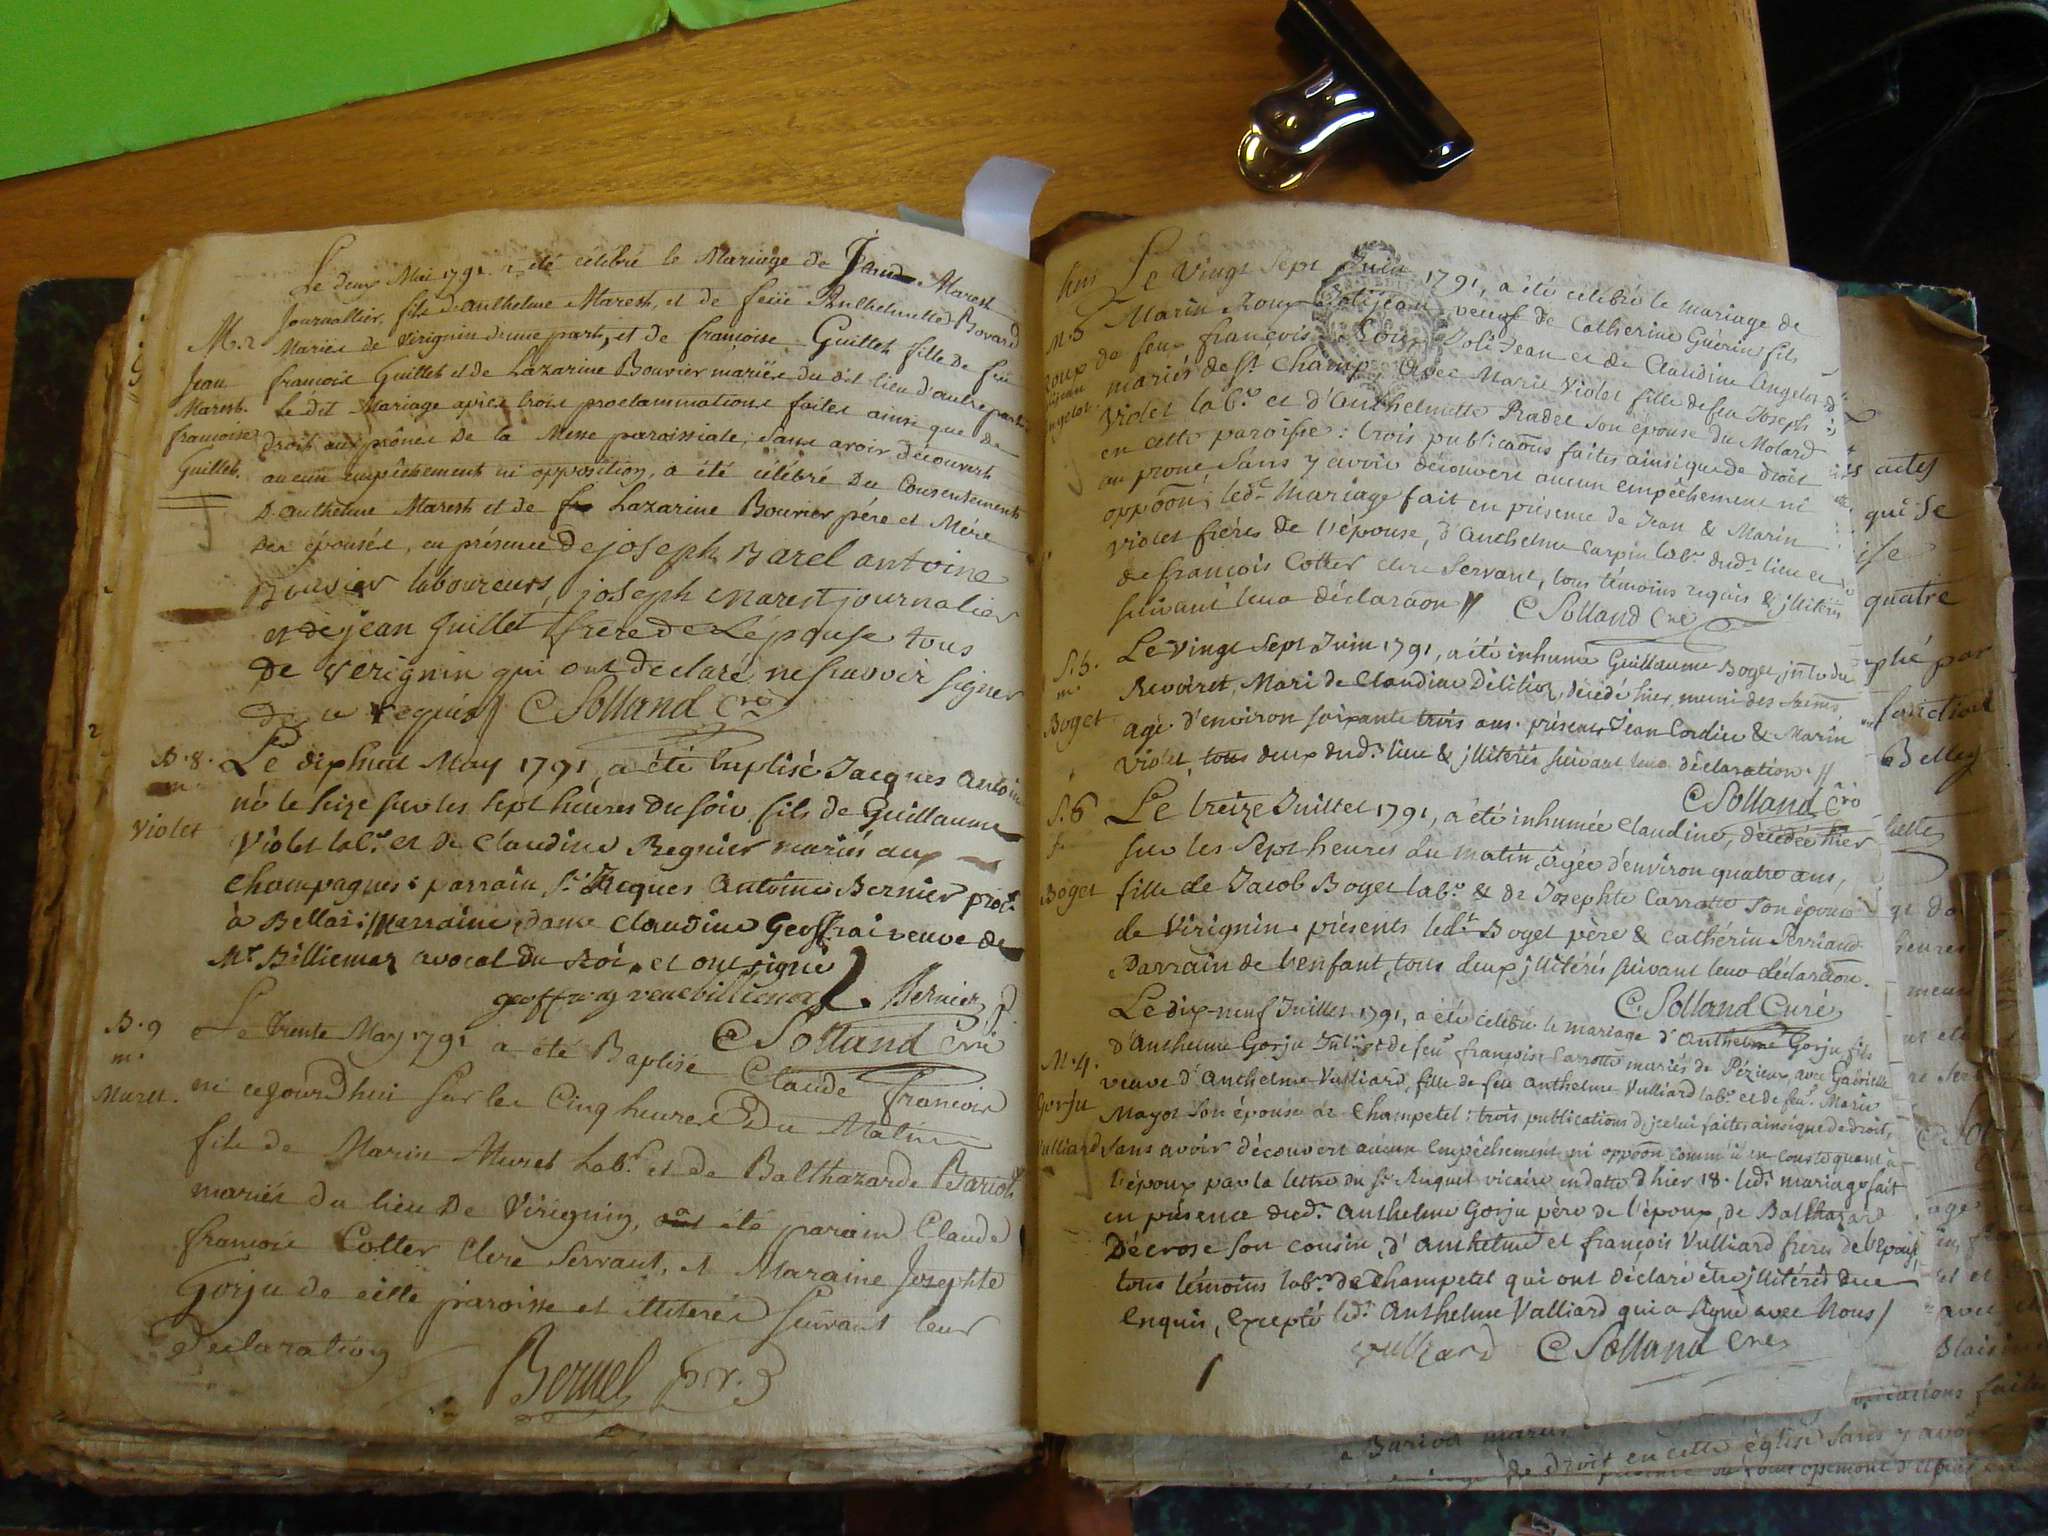 Le deux Mai 1791 a été célébré le Mariage de Jean Marest
Journallier, fils d'anthelme Marest, et de feüe Anthelmette Bovard
M. 2 Mariés de virignin d'une part, et de françoise Guillet fille de feu
Jean françois Guillet et de Lazarine Bouvier mariés du dit lieu d'autre part
Marest. le dit Mariage après trois proclammations faites ainsi que de
françoise droit aux prônes De la Messe paroissiale, sans avoir découvert
Guillet. aucun empêchement ni opposition, a été célébré Du Consentement
D'anthelme Marest et de Lazarine Bouvier père et Mére
Des épousés, en présence de joseph Barel antoine
Bouvier laboureurs, joseph marest journalier
et de jean guillet frere de Lépouse tous
De virignin qui ont declaré ne scavoir signer
de ce requis // C Solland Cré
B. 8. Le dixhuit May 1791, a été baptisé Jacques antoine
m. né le seize sur les sept heures du soir, fils de Guillaume
Violet Violet lab.r et de Claudine Regnier mariés aux
Champagnes : parrain, S.r Jacques Antoine Bernier proc.r
à Bellai : Marraine, dame Claudine Geoffrai veuve de
M.r Billiemaz avocat du Roi, et ont signé
geoffray veuve billiemaz Bernier
C Solland Cré
B. 9 Le Trente May 1791 a été Baptisé Claude françois
m. né cejourdhui sur les Cinq heures Du Matin
Muret. fils de Marin Muret Lab.r et de Balthazarde
mariés du lieu De Virignin, été parain Claude
françois Cotter Clerc Servant, et Maraine Josephte
Gorju de cette paroisse et illiterés Suivant leur
Declaration
Bernel
Le Vingt Sept Juin 1791, a été célébré le mariage de
M. 3 Marin Roux Jolijean, veuf de Catherine Guérin fils
de feu françois Roux Joli Jean et de Claudine Angelot
mariés de St. Champ, avec Marie Violet fille de feu Joseph
Violet lab.r et d'Anthelmette Pradel son épouse du Molard
en cette paroisse : trois publicaõns faites ainsi que de droit
au prone sans y avoir découvert aucun empêchement ni
oppõon, led.t Mariage fait en présence de Jean & Marin
Violet frères de l'épouse, d'Anthelme Carpin lab.r dud.t lieu et
de françois Cotter clerc servant, tous témoins requis & illiterés
suivant leur déclaraõn // C Solland Cré
S. 5. Le Vingt Sept Juin 1791, a été inhumé Guillaume Boget,
m. Revoiret, Mari de Claudine décédé hier, muni des
Boget agé d'environ soixante trois ans. présents Jean Cordier & Marin
Violet, tous deux dud.t lieu & illiterés suivant leur déclaration. //
C Solland Cré
S. 6 Le treize Juillet 1791, a été inhumée Claudine, décédée hier
f. sur les Sept heures du matin, âgée d'environ quatre ans,
Boget fille de Jacob Boget lab.r & de Josephte Carrotte son épouse
de Virignin. présents led.t Boget père & Catherin Perriand
Parrain de l'enfant, tous deux illitérés suivant leur déclaraõn.
C Solland Curé
Le dix-neuf Juillet 1791, a été célébré le mariage d'Anthelme Gorju fils
M. 4. d'Anthelme Gorju et de feu françoise Carrotte mariés de Pézieux, avec Gabrielle
veuve d'Anthelme Vulliard, fille de feu Anthelme Vulliard lab.r et de feu Marie
Gorju Mayot son épouse de Champetel : trois publications d'icelui faites, ainsi que de droit,
Vulliard sans avoir découvert aucun empêchement ni oppõon comm'il en conste quant à
l'époux par la lettre du S.r Ruguet vicaire en datte d'hier 18. led.t mariage fait
en présence dud.t Anthelme Gorju père de l'époux, de Balthazard
Décrose son cousin, d'Anthelme et françois Vulliard freres de l'épouse,
tous témoins lab.rs de Champetel qui ont déclaré être illitérés de ce
enquis, Excepté led.t Anthelme Valliard qui a signé avec Nous /
vulliard C Solland Cré
actes
qui se
quatre
par
fonction
Belley
heures
age
avec
Blaisine
publications faites
a
de droit en cette église sans y avoir